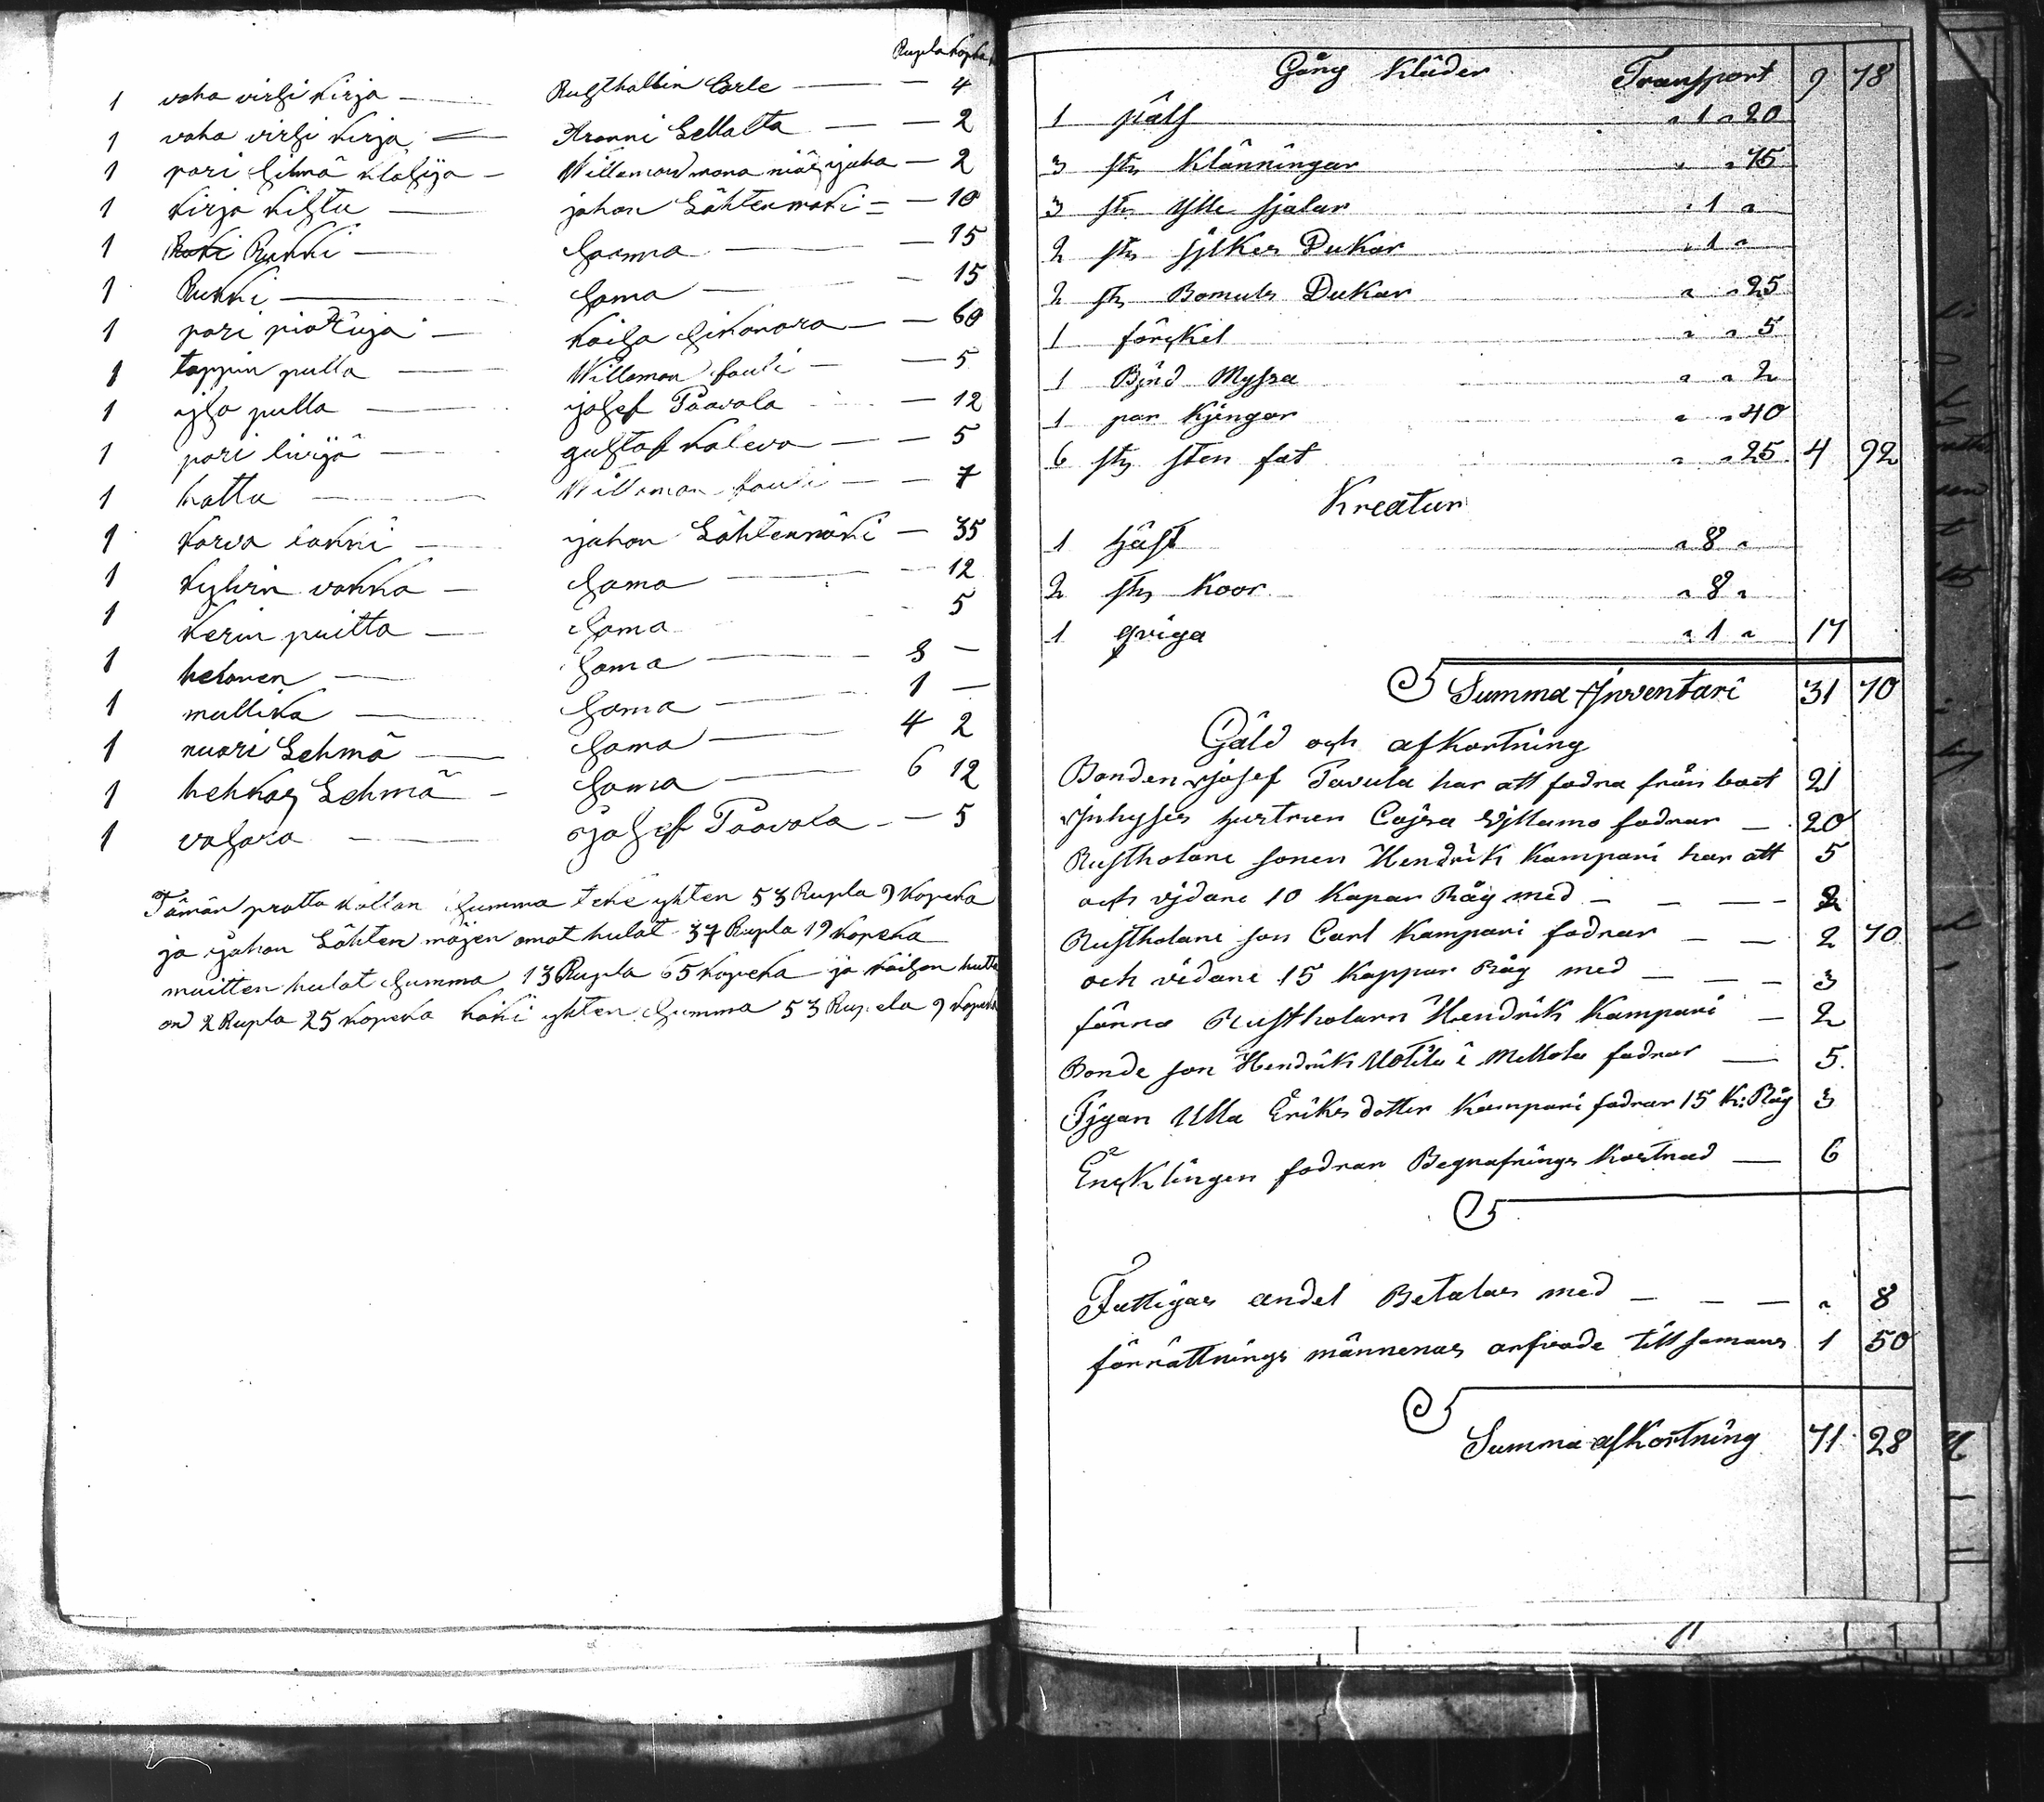 Rupla kopka
1 vaha virsi kirja — Rusthallin Carle — — 4
1 vaha virsi kirja — Kranni Sellalta — — 2
1 pari silmä klasija — Willamau mana niäs juha — 2
1 kirja kistu — johan Lähtenmäki — — 10
1 Rukki — sama — — 15
1 Rukki — sama — — 15
1 pari piäxuja — kaisa sikanara — — 60
1 tappin pulla — Willaman pauli — — 5
1 iso pulla — josef Paavola — 12
1 pari liivjä — gustaf kaleva — — 5
1 hattu — Willaman pauli — — 7
1 karva lakki — juhan Lähtenmäki — 35
1 kylvin vakka — sama — — 12
1 kerin puitta — sama - 5
1 hevonen — sama — 8 —
1 mullika — sama — 1 —
1 nuari Lehmä — sama — 4 2
1 kehkas Lehmä — sama — 6 12
1 vasara — josef Paavola — — 5
Tämän pratta kallan summa teke yhten 53 Rupla 9 kopeka
ja juhan Lähten mäjen amat hulat 37 Rupla 19 kopeka
muitten hulat summa 13 Rupla 65 kopeka ja kaisan hutt
on 2 Rupla 25 kopeka kaki yhten summa 53 Rupela 9 kopeka
Gång Kläder Transport 9 78
1 päls " 1 " 20
3 st Klänningar " " 75
3 st ylle sjalar " 1 "
2 st sjlkes Dukar " 1 "
2 st Bomuls Dukar " " 25
1 förskel " " 5
1 Bjnd Myssa " " 2
1 par Kjengar " " 40
6 st sten fat " " 25 4 92
Kreatur
1 häst " 8 "
2 st Koor " 8 "
1 qviga " 1 " 17
Summa Inventari 31 70
Gäld och afkortning
Bonden Josef Pavula har att fodra från boet 21
Inhyses hustrun Cajsa Willamo fodrar — 20
Rustholare sonen Hendrik Kampari har att 5
och vjdare 10 Kapar Råg med — — — 2
Rustholare son Carl Kampari fodrar — — 2 70
och vidare 15 Kappar Råg med — — — 3
förra Rustholarn Hendrik Kampari — 2
Bonde son Hendrik Uotila i Mellola fodrar — 5
Pjgan Ulla Eriksdotter Kampari fodrar 15 K: Råg 3
Encklingen fodrar Begrafnings Kostnad — 6
Fattigas andel Betalas med — — — " 8
förrättnings männenas arfvode till samans 1 50
Summa afkortning 71 28